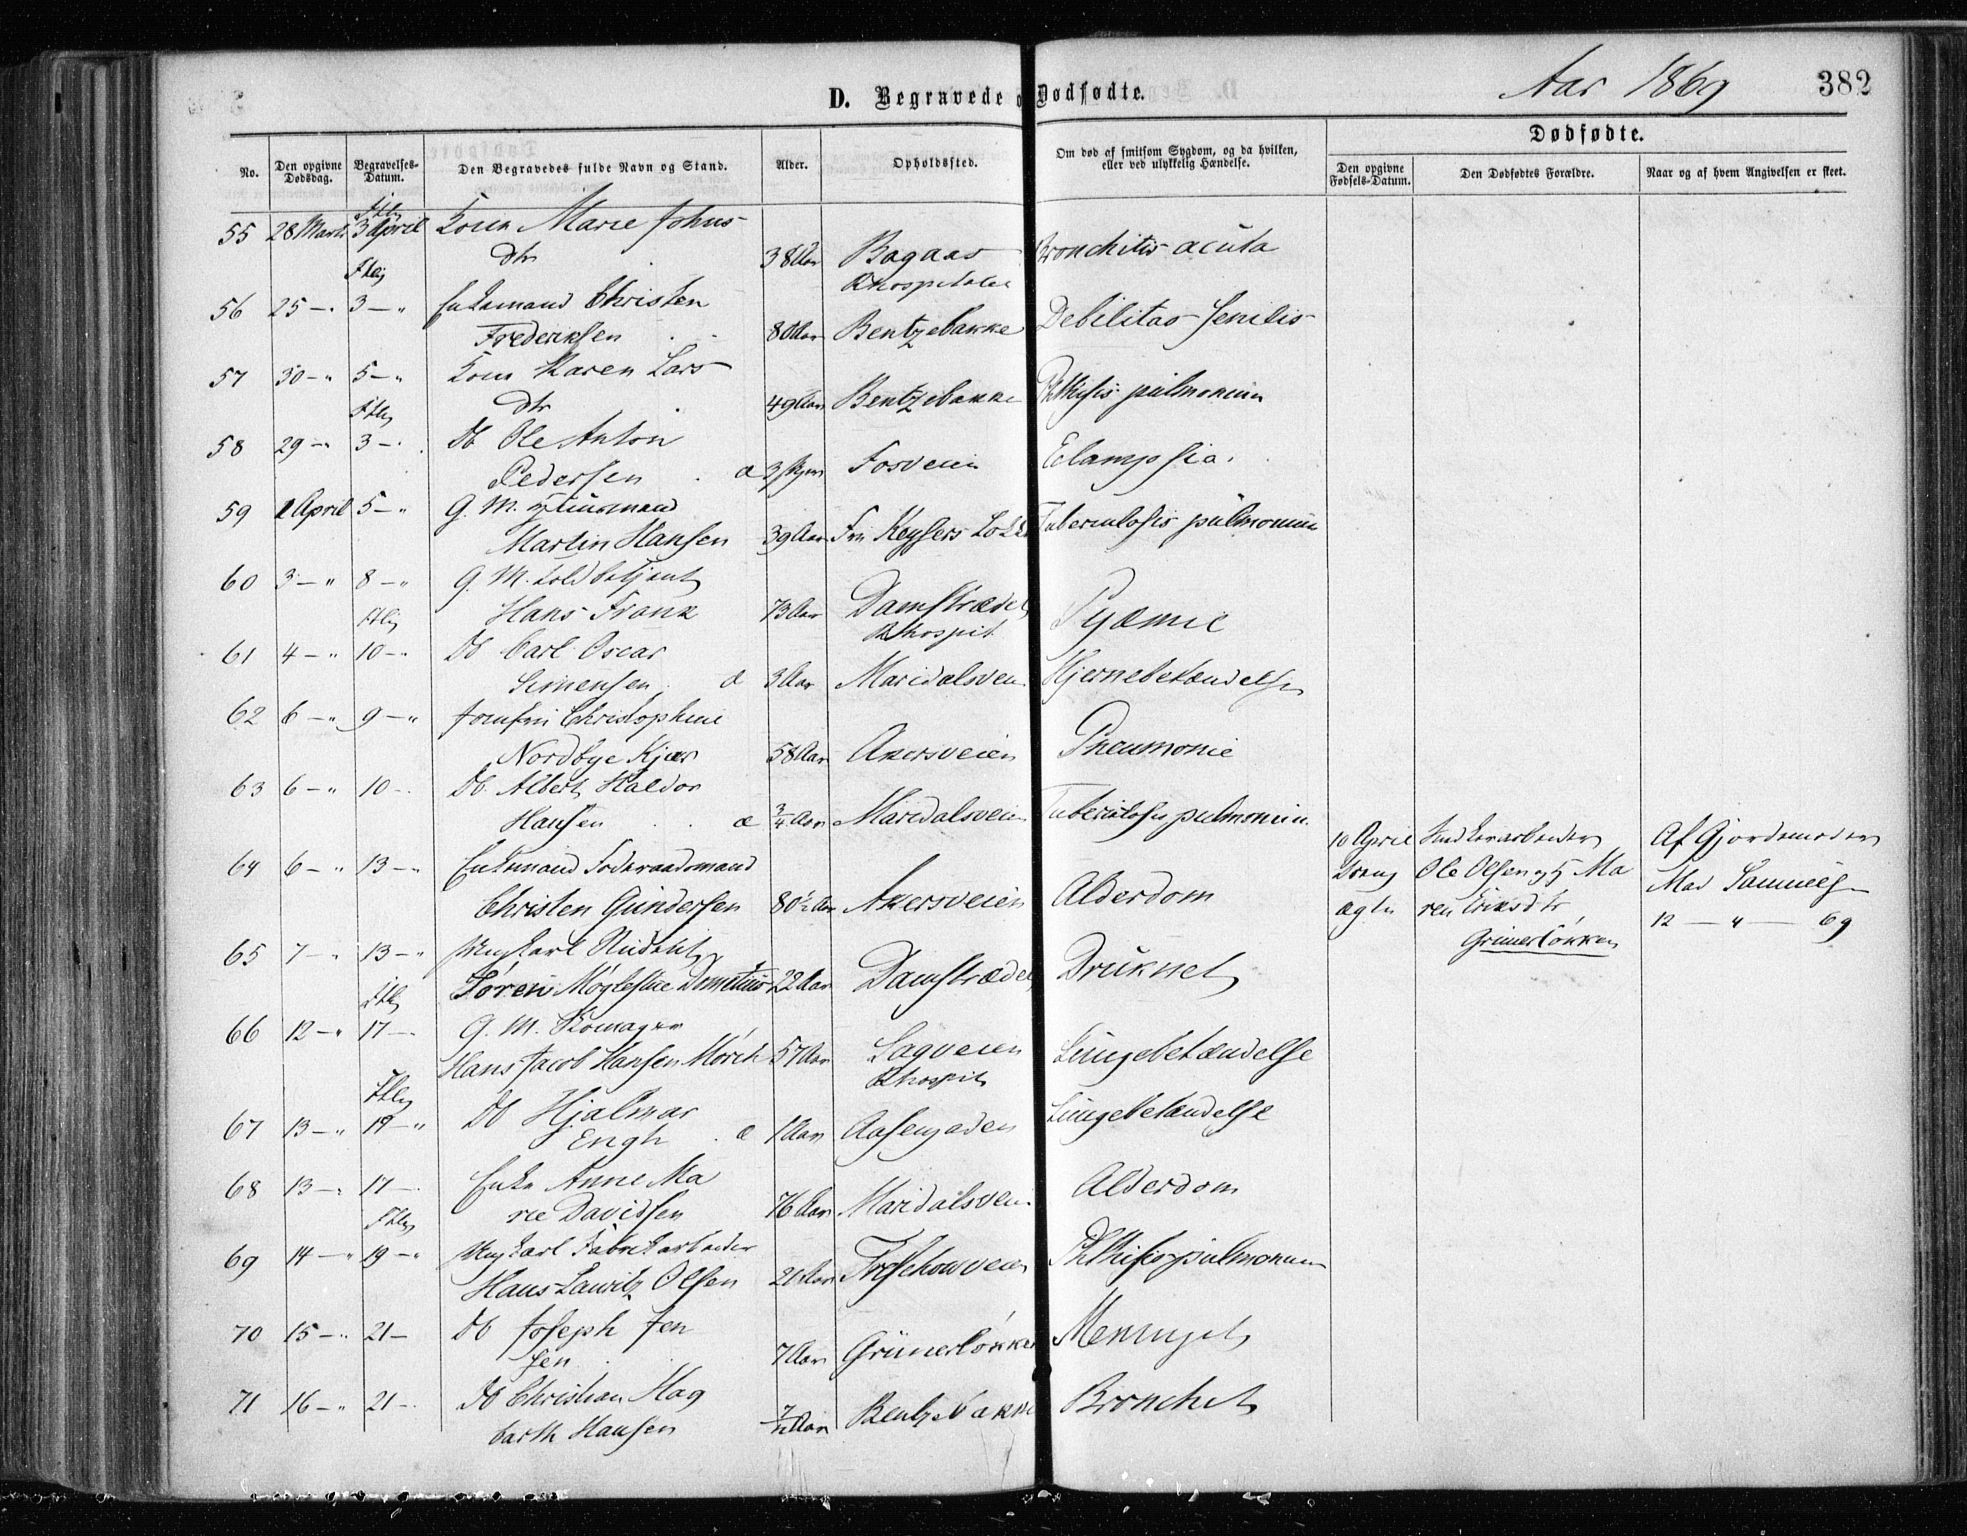 D. Begravede o Dødfødte.
Aar 1869
382
No.
Den opgivne Dødsdag.
Begravelses-Datum.
Den Begravedes fulde Navn og Stand.
Alder.
Opholdssted.
Om død af smitsom Sygdom, og da hvilken, eller ved ulykkelig Hændelse.
Dødfødte.
Den opgivne Fødsels-Datum.
Den Dødfødtes Forældre.
Naar og af hvem Angivelsen er skeet.
55 28 Marts 3 April Kone Marie Johns
dtr 38 Aar Bagaas Bronchitis acuta
Rhospitalet
56 25 — " 3 — " Enkemand Christen
Frederiksen 80 Aar Bentzebakke Debilitas senilis
57 30 — " 5 — " Kone Karen Lars
dtr 49 Aar Bentzebakke Phthisis pulmonum
58 29 — " 3 — " Db Ole Anton
Pedersen æ 3 Fosveien Eclampsia.
59 1 April 5 — " G. M. Huusmand
Martin Hansen 39 Aar Fru Keysers Løkke Tuberculosis pulmonum
60 3 — " 8 — " G. M. Toldbetjent
Hans Frank 73 Aar Damstrædet Pyæmie
Rhospit
61 4 — " 10 — " Db Carl Oscar
Simensen æ 3 Aar Maridalsveien Hjernebetændelse
62 6 — " 9 — " Jomfru Christophine
Nordbye Kjær 58 Aar Akersveien Pneumonie
63 6 — " 10 — " Db. Albert Haldor
Hansen æ 3/4 Aar Maridalsveien Tuberculosis pulmonum.
64 6 — " 13 — " Enkemand Foderaadsmand
Christen Gundersen 80½ Aar Akersveien Alderdom
10 April
Dreng
ægte
Ole Olsen og Ma
ren Eriksdtr
Grünerløkken
Af Gjordemoder
Mad
12 — " — 69
65 7 — " 13 — " Ungkarl Student
Sören Møglestue Dometius 22 Aar Damstrædet Druknet
66 12 — " 17 — " G. M. Skomager
Hans Jacob Hansen Mörch 57 Aar Sagveien Lungebetændelse
Rhospit
67 13 — " 19 — " Db Hjalmar
Engh æ 1 Aar Aasengaden Lungebetændelse
68 13 — " 17 — " Enke Anne Ma
rie Davidsen 76 Aar Maridalsveien Alderdom
69 14 — " 19 — " Ungkarl Fabrikarbeider
Hans Lauritz Olsen 20 Aar Treschowveien Phthisis pulmonum
70 15 — " 21 — Db Joseph Jen
sen 7 Aar Grünerløkken Meningit
71 16 — " 21 — " Db Christian Hag
barth Hansen Aar Bentzebakke Bronchit